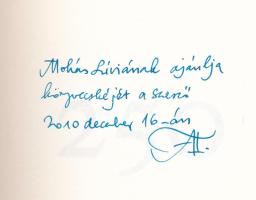 Mohás Líviának ajánlja
könyvecskéjét a szerző
2010 december 16-án